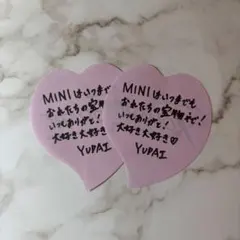 MINIはいつまでも
おれたちの宝物やで!
いつもありがと!
大好き大好き♡
YUDAI
MINIはいつまでも
おれたちの宝物やで!
いつもありがと!
大好き大好き♡
YUDAI